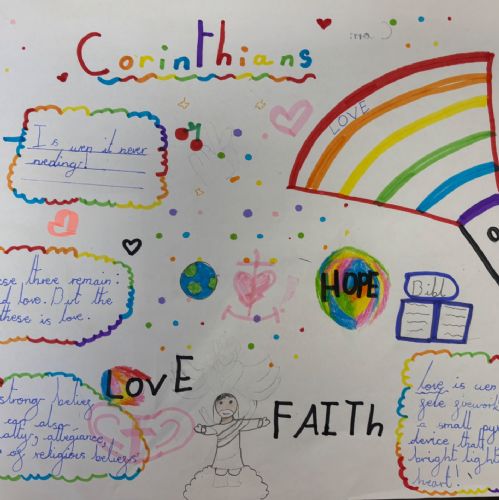 Corinthians
LOVE
Is wen it never
nedings!
HOPE
Bibl
these three remain:
love. But the
these is love.
LOVE
FAITh
strong belief
can also
allegiance,
of religious beliefs
Love is wen
fele firework
a small
device that
bright light
heart!